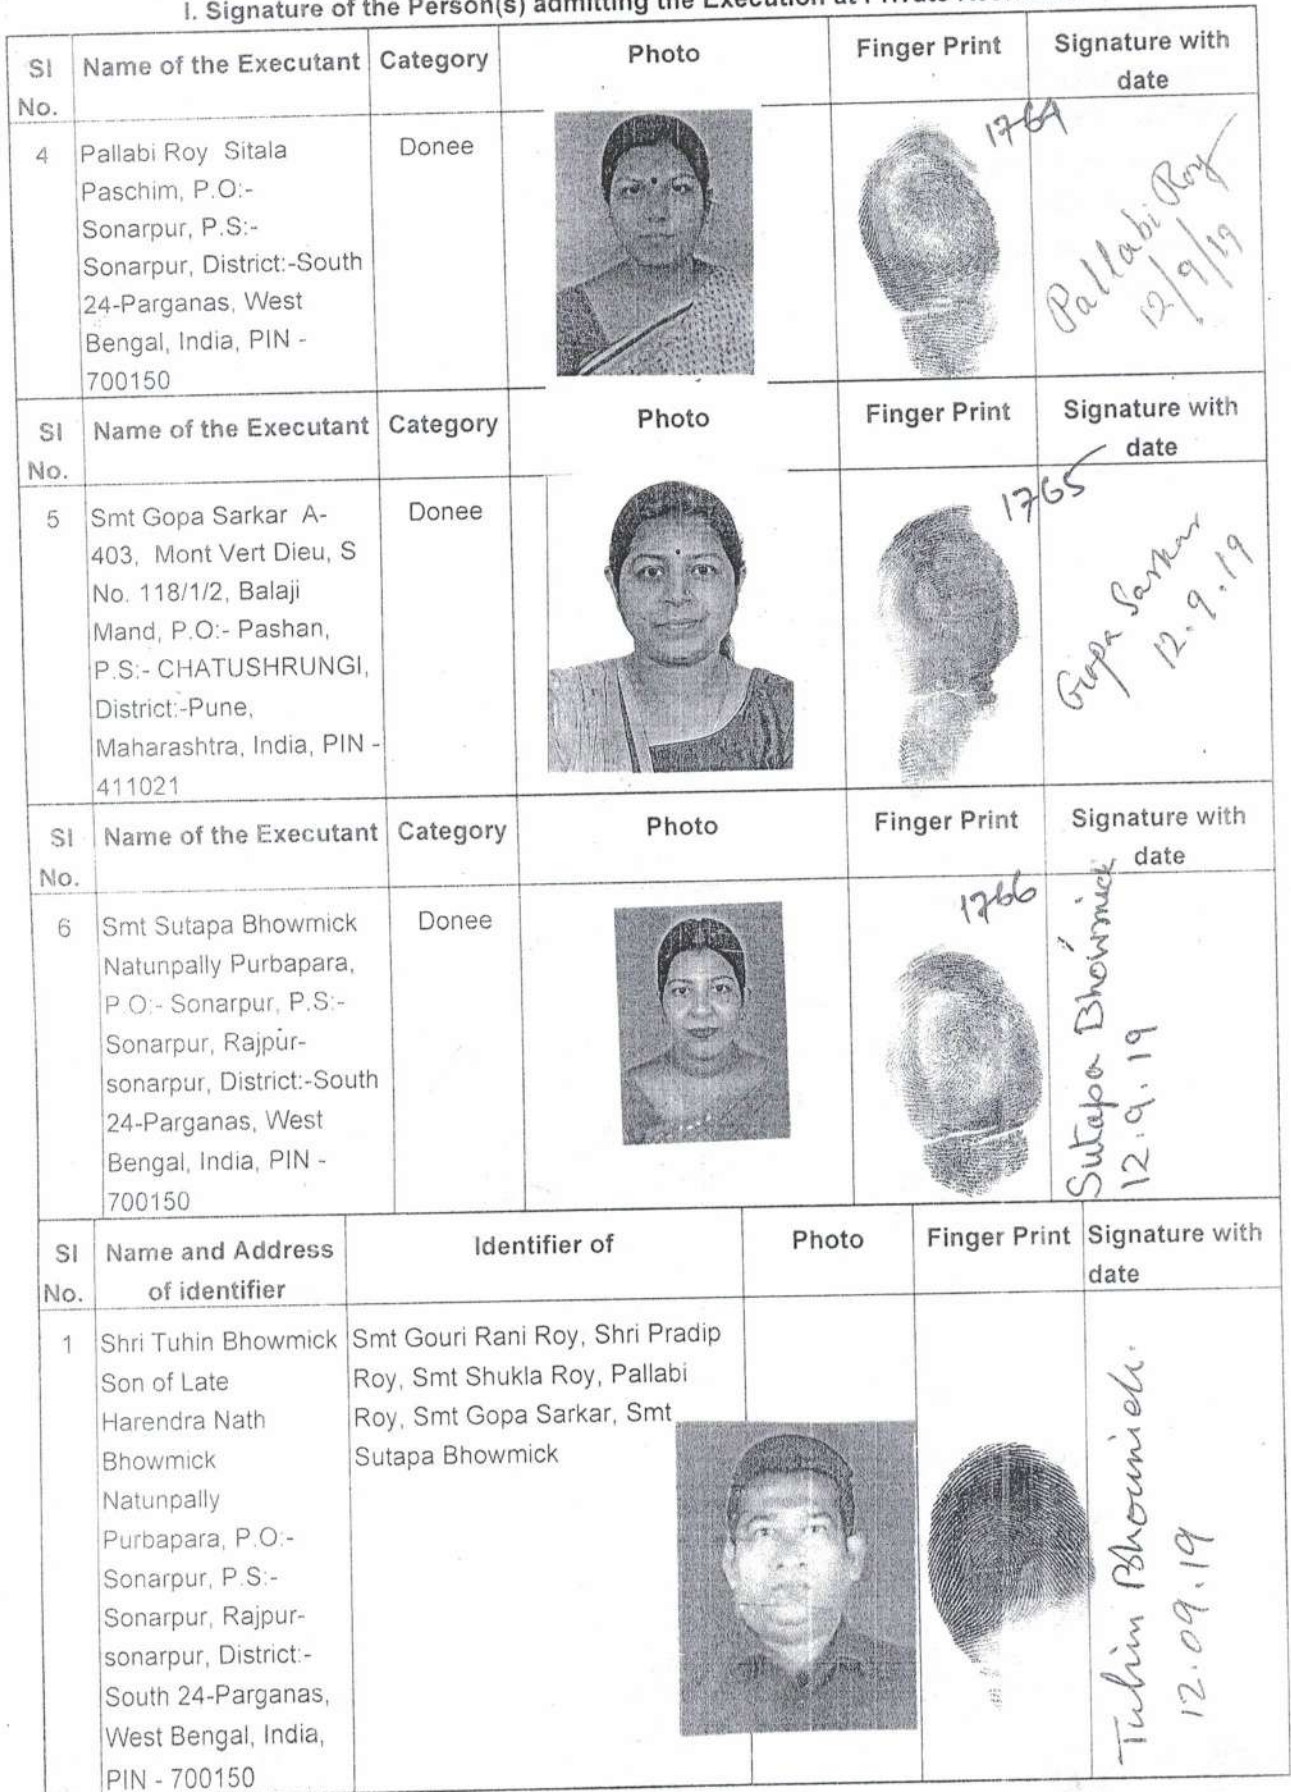 I. Signature of the Person(s) admitting the Execution at Private
Sl No. Name of the Executant Category Photo Finger Print Signature with date
4 Pallabi Roy Sitala Donee
Paschim, P.O:-
Sonarpur, P.S:-
Sonarpur, District:-South
24-Parganas, West
Bengal, India, PIN -
700150
1764
Pallabi Roy
12/9/19
Sl No. Name of the Executant Category Photo Finger Print Signature with date
5 Smt Gopa Sarkar A- Donee
403, Mont Vert Dieu, S
No. 118/1/2, Balaji
Mand, P.O:- Pashan,
P.S:- CHATUSHRUNGI,
District:-Pune,
Maharashtra, India, PIN -
411021
1765
Gopa Sarkar
12.9.19
Sl No. Name of the Executant Category Photo Finger Print Signature with date
6 Smt Sutapa Bhowmick Donee
Natunpally Purbapara,
P.O:- Sonarpur, P.S:-
Sonarpur, Rajpur-
sonarpur, District:-South
24-Parganas, West
Bengal, India, PIN -
700150
1766
Sutapa Bhowmick
12.9.19
Sl No. Name and Address of identifier Identifier of Photo Finger Print Signature with date
1 Shri Tuhin Bhowmick
Son of Late
Harendra Nath
Bhowmick
Natunpally
Purbapara, P.O:-
Sonarpur, P.S:-
Sonarpur, Rajpur-
sonarpur, District:-
South 24-Parganas,
West Bengal, India,
PIN - 700150
Smt Gouri Rani Roy, Shri Pradip
Roy, Smt Shukla Roy, Pallabi
Roy, Smt Gopa Sarkar, Smt
Sutapa Bhowmick
Tuhin Bhowmick.
12.09.19